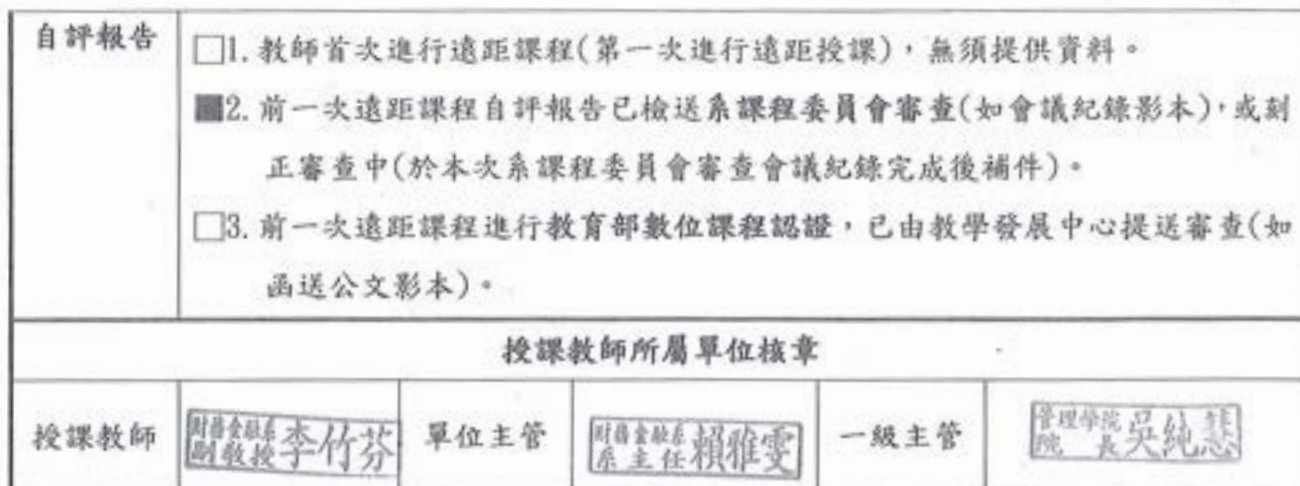 自評報告
□1. 教師首次進行遠距課程(第一次進行遠距授課)，無須提供資料。
■2. 前一次遠距課程自評報告已檢送系課程委員會審查(如會議紀錄影本)，或刻
正審查中(於本次系課程委員會審查會議紀錄完成後補件)。
□3. 前一次遠距課程進行教育部數位課程認證，已由教學發展中心提送審查(如
函送公文影本)。
授課教師所屬單位核章
授課教師
財務金融系
副教授 李竹芬
單位主管
財務金融系
系主任 賴雅雯
一級主管
管理學院
院長 吳純慧